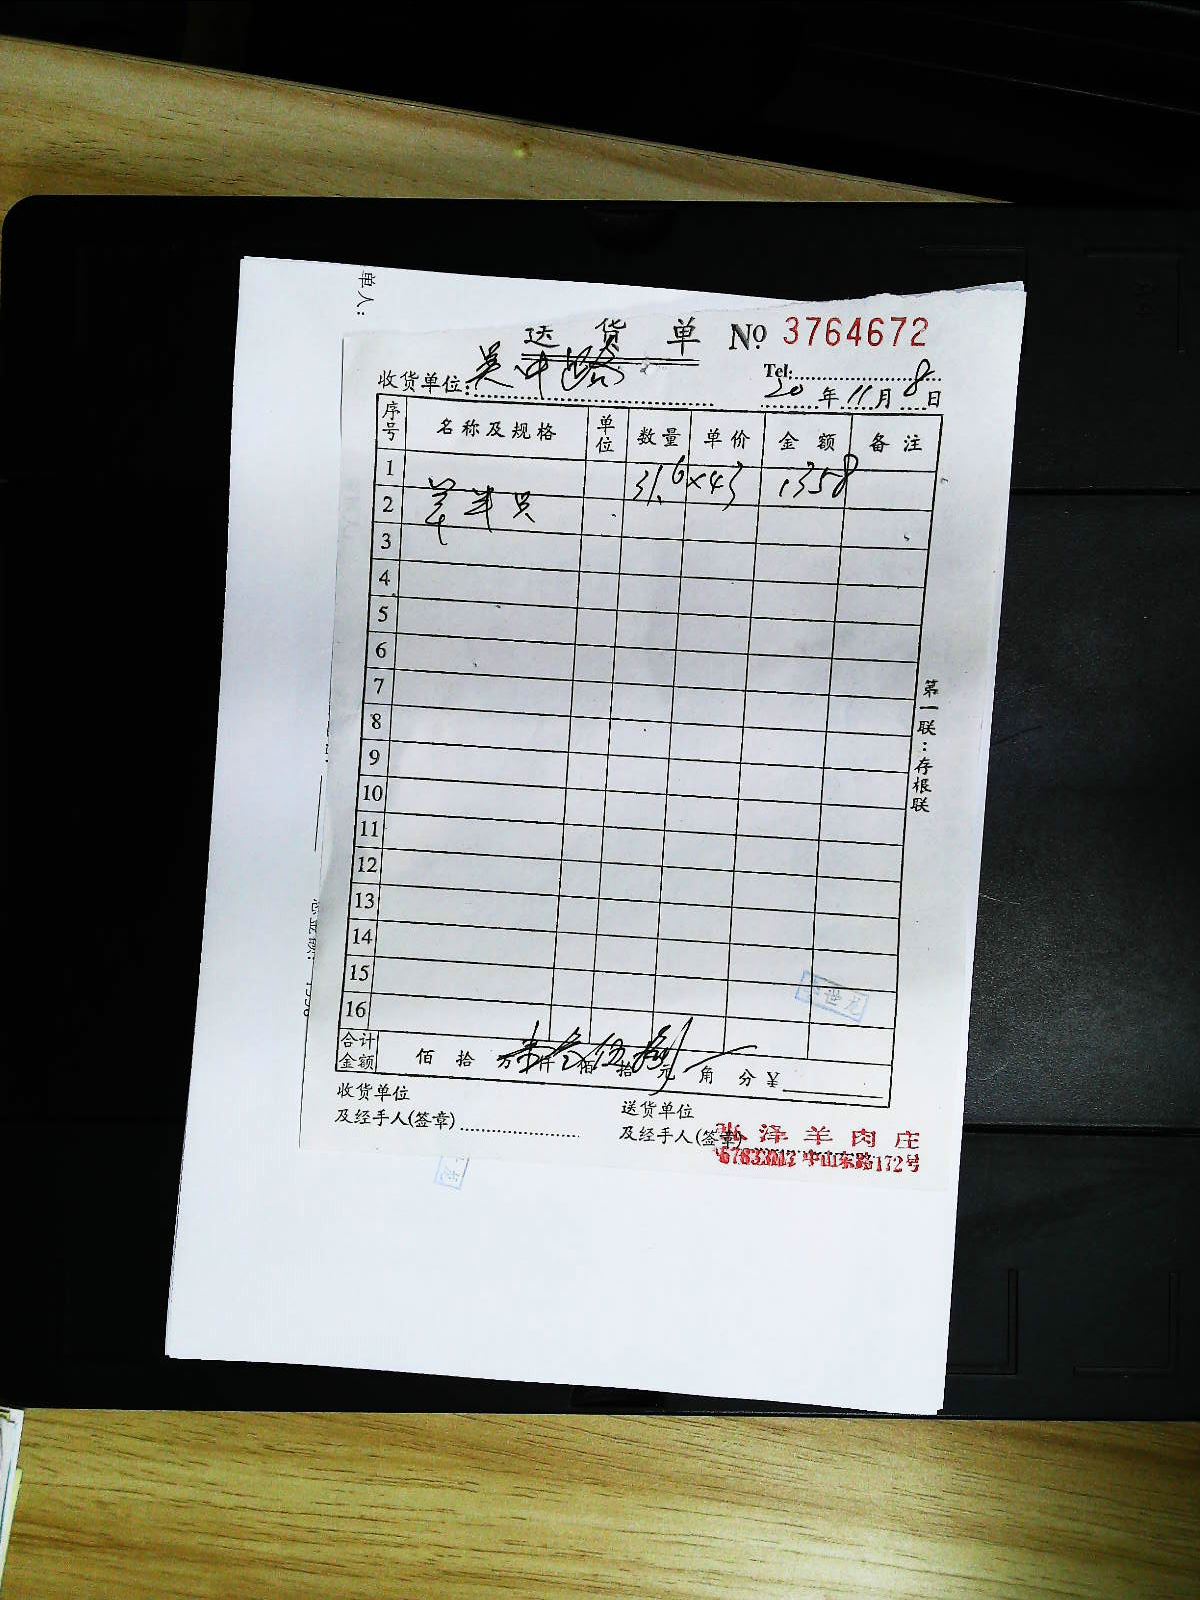 单人:
送货单 No 3764672
Tel:
收货单位: 吴中路
20年11月8日
序号 名称及规格 单位 数量 单价 金额 备注
1 31.6×43 1358
2 羊半只
3
4
5
6
7
8
9
10
11
12
13
14
15
16
合计金额 佰 拾 万 仟 叁佰伍拾捌元 角 分 ¥
第一联:存根联
世龙
收货单位
及经手人(签章)
送货单位
及经手人(签章)
张泽羊肉庄
中山东路172号